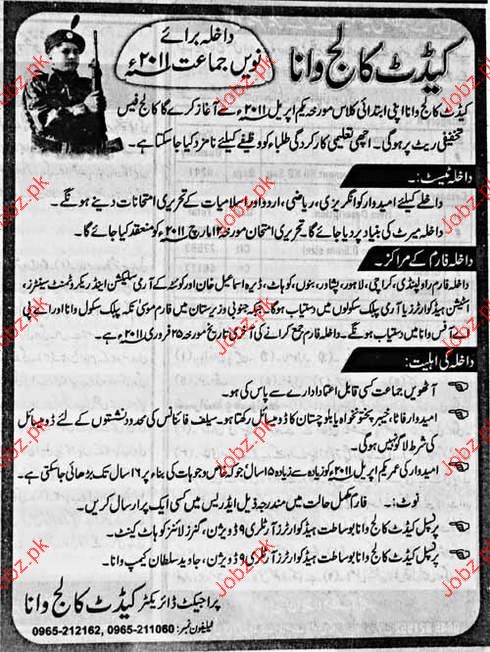 داخلہ برائے
نویں جماعت ۲۰۱۱ء
کیڈٹ کالج وانا
کیڈٹ کالج وانا اپنی ابتدائی کلاس مورخہ یکم اپریل ۲۰۱۱ء سے آغاز کرے گا کالج فیس
تخفیفی ریٹ پر ہوگی۔ اچھی تعلیمی کارکردگی طلباء کو وظیفے کیلئے نامزد کیا جاسکتا ہے۔
داخلہ ٹیسٹ:۔
داخلے کیلئے امیدوار کو انگریزی، ریاضی، اردو اور اسلامیات کے تحریری امتحانات دینے ہونگے۔
داخلہ میرٹ کی بنیاد پر دیا جائے گا۔ تحریری امتحان مورخہ ۱۲ مارچ ۲۰۱۱ء کو منعقد کیا جائے گا۔
داخلہ فارم کے مراکز:۔
داخلہ فارم راولپنڈی، کراچی، لاہور، پشاور، بنوں، کوہاٹ، ڈیرہ اسماعیل خان اور کوئٹہ کے آرمی سلیکشن اینڈ ریکروٹمنٹ سینٹرز،
اسٹیشن ہیڈکوارٹرز یا آرمی پبلک سکولوں میں دستیاب ہوگا جبکہ جنوبی وزیرستان میں فارم موسیٰ نکہ پبلک سکول وانا اور اے پی
اے آفس وانا میں دستیاب ہونگے۔ داخلہ فارم جمع کرانے کی آخری تاریخ مورخہ ۲۵ فروری ۲۰۱۱ء ہے۔
داخلہ کی اہلیت:۔
آٹھویں جماعت کسی قابل اعتماد ادارے سے پاس کی ہو۔
امیدوار فاٹا، خیبر پختونخواہ یا بلوچستان کا ڈومیسائل رکھتا ہو۔ سیلف فائنانس کی محدود نشستوں کے لئے ڈومیسائل
کی شرط لاگو نہیں ہوگی۔
امیدوار کی عمر یکم اپریل ۲۰۱۱ء کو زیادہ سے زیادہ ۱۵ سال جو کہ خاص وجوہات کی بناء پر ۱۶ سال تک بڑھائی جاسکتی ہے۔
نوٹ:۔ فارم مکمل حالت میں مندرجہ ذیل ایڈریس میں کسی ایک پر ارسال کریں۔
پرنسپل کیڈٹ کالج وانا بوساطت ہیڈکوارٹرز آرٹلری ۹ ڈویژن، گنرز لائنز کوہاٹ کینٹ۔
پرنسپل کیڈٹ کالج وانا بوساطت ہیڈکوارٹرز آرٹلری ۹ ڈویژن، جاوید سلطان کیمپ وانا۔
پراجیکٹ ڈائریکٹر کیڈٹ کالج وانا
ٹیلیفون نمبر: 0965-212162, 0965-211060
Jobz.pk